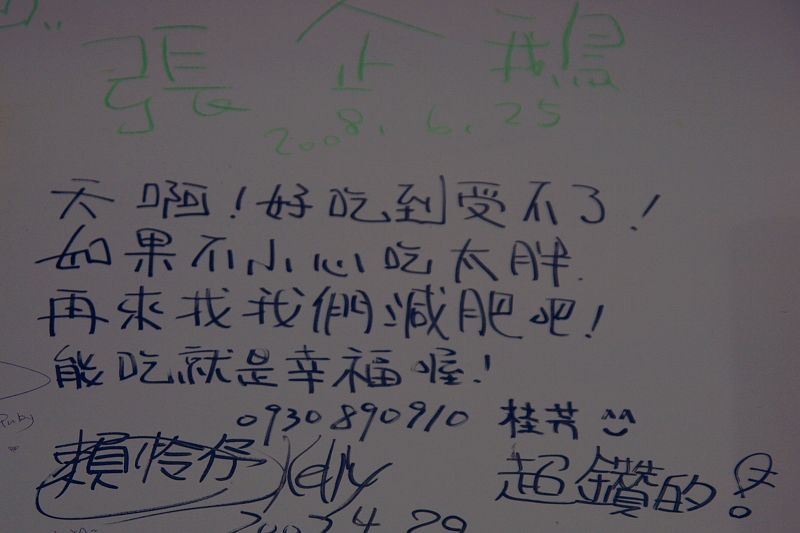 張企鵝
2008.6.25
天啊!好吃到受不了!
如果不小心吃太胖.
再來找我們減肥吧!
能吃就是幸福喔!
0930890910 桂芳
賴怜伃 Kelly
超鑽的!